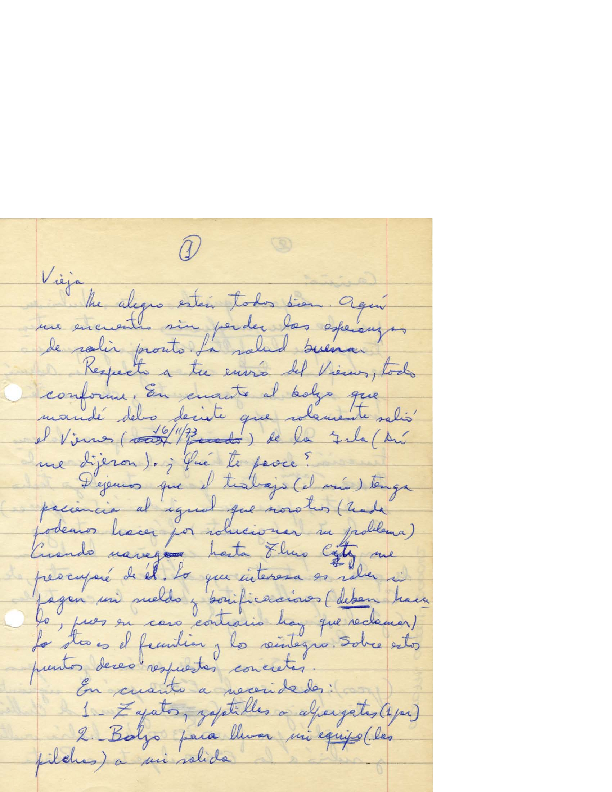 1
Vieja
Me alegro estén todos bien. Aquí
me encuentro sin perder las esperanzas
de salir pronto. La salud buena
Respecto a tu envío del Viernes, todo
conforme. En cuanto al bolzo que
mandé debo decirte que solamente salió
el Viernes (16/11/73) de la Isla (Así
me dijeron). ¿Que te parece?
Dejemos que el trabajo (el mío) tenga
paciencia al igual que nosotros (Nada
podemos hacer por solucionar su problema)
Cuando hasta City me
preocuparé de él. Lo que interesa es saber si
pagan mi sueldo y bonificaciones (deben hacer
lo, pues en caso contrario hay que reclamar)
Lo otro es el familiar y lo reintegro. Sobre estos
puntos deseo respuestas concretas.
En cuanto a necesidades:
1.- Zapatos, zapatillas o alpargatas (1 par)
2.- Bolzo para llevar mi equipo (las
pilchas) a mi salida